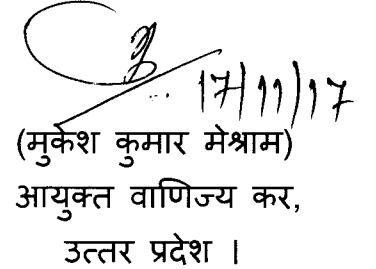 17/11/17
(मुकेश कुमार मेश्राम)
आयुक्त वाणिज्य कर,
उत्तर प्रदेश ।